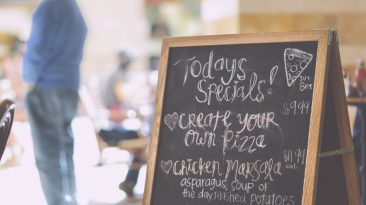 Todays
Specials!
$9.99
Create your
own Pizza
Chicken Marsala
$11.99
asparagus, soup of
the day, mashed potatoes